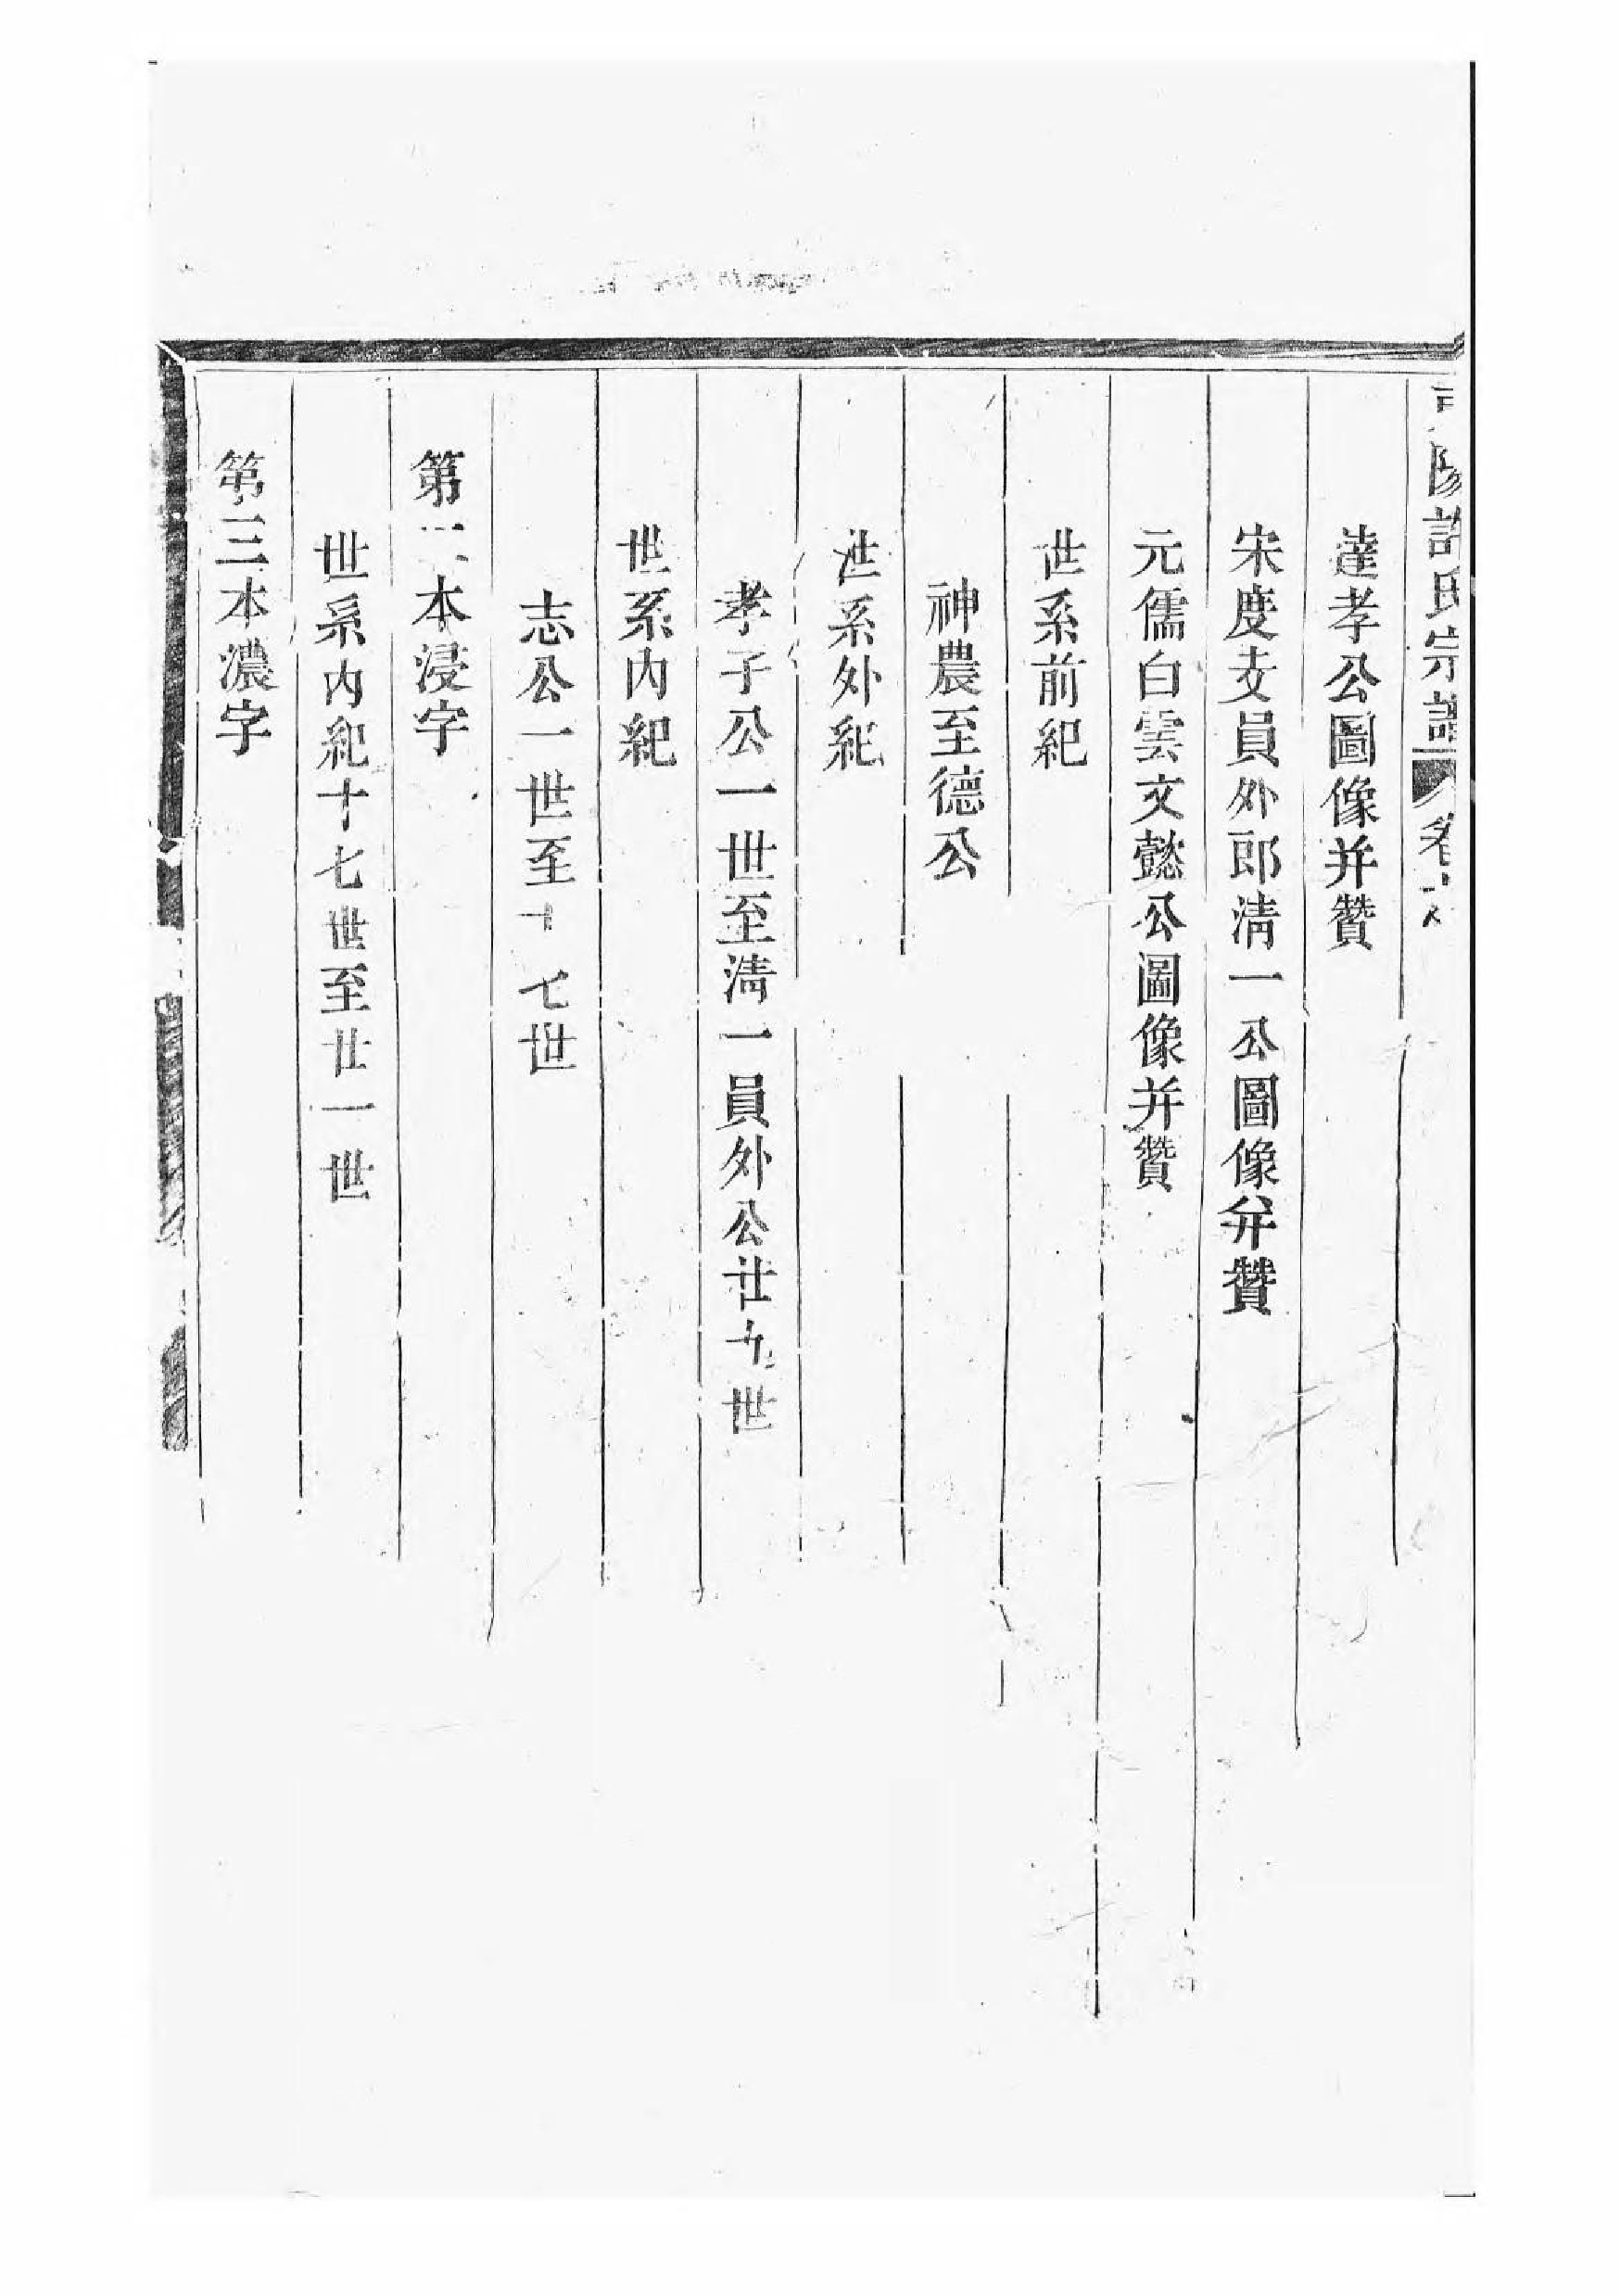 陽許氏宗譜 卷
達孝公圖像并贊
宋度支員外郎淸一公圖像并贊
元儒白雲文懿公圖像并贊
世系前紀
神農至德公
世系外紀
孝子公一世至淸一員外公廿九世
世系內紀
志公一世至十七世
第二本浸字
世系內紀十七世至廿一世
第三本濃字